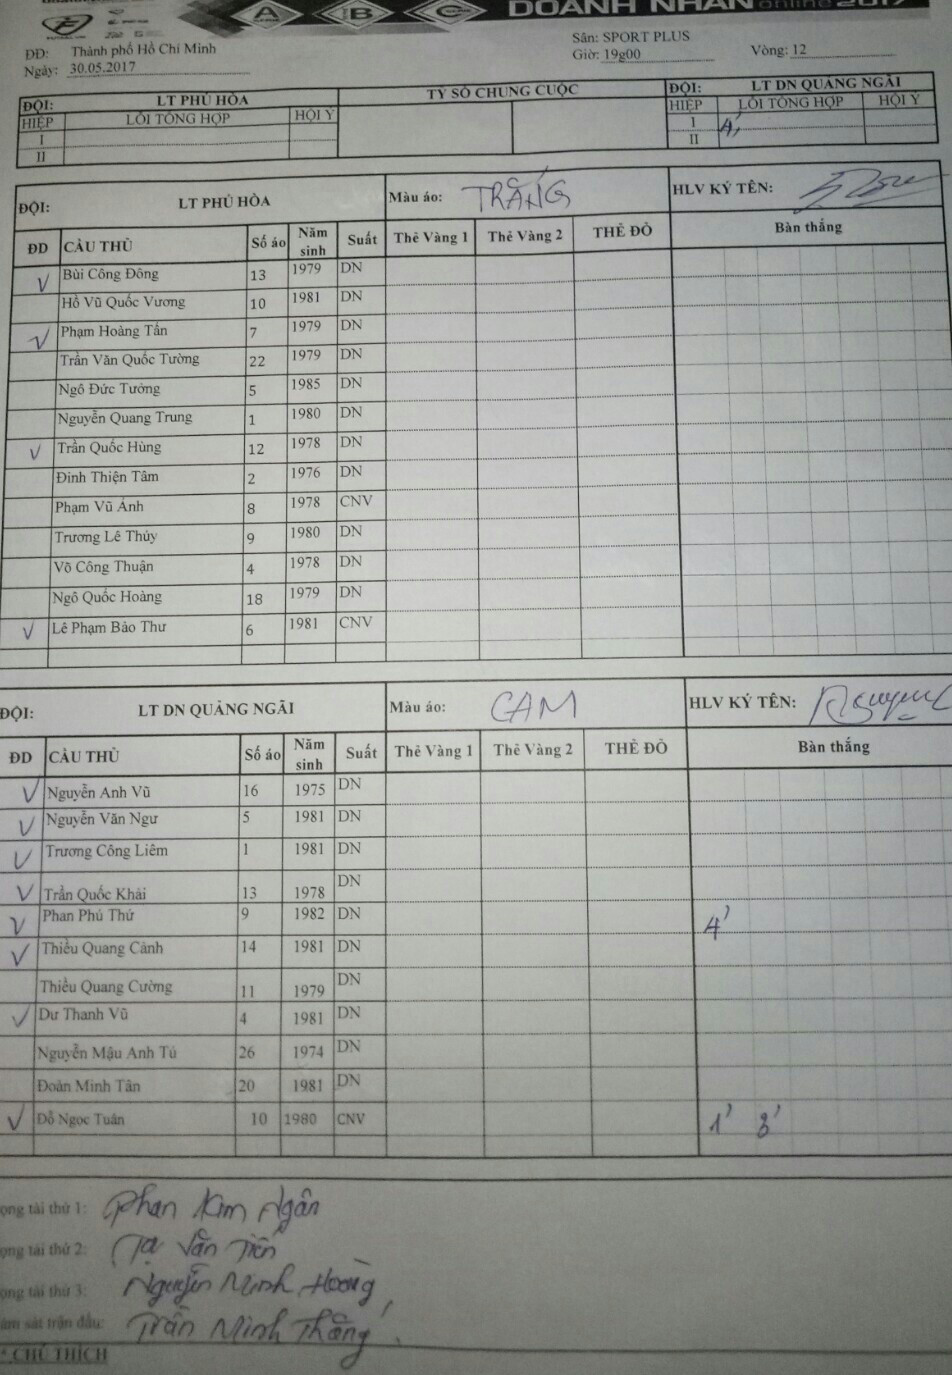 A B C DOANH NHÂN online 2017
ĐĐ: Thành phố Hồ Chí Minh Sân: SPORT PLUS
Ngày: 30.05.2017 Giờ: 19g00 Vòng: 12
ĐỘI: LT PHÚ HÒA TỶ SỐ CHUNG CUỘC ĐỘI: LT DN QUẢNG NGÃI
HIỆP LỖI TỔNG HỢP HỘI Ý HIỆP LỖI TỔNG HỢP HỘI Ý
I I 4'
II II
ĐỘI: LT PHÚ HÒA Màu áo: TRẮNG HLV KÝ TÊN:
ĐD CẦU THỦ Số áo Năm sinh Suất Thẻ Vàng 1 Thẻ Vàng 2 THẺ ĐỎ Bàn thắng
V Bùi Công Đông 13 1979 DN
Hồ Vũ Quốc Vương 10 1981 DN
V Phạm Hoàng Tấn 7 1979 DN
Trần Văn Quốc Tường 22 1979 DN
Ngô Đức Tưởng 5 1985 DN
Nguyễn Quang Trung 1 1980 DN
V Trần Quốc Hùng 12 1978 DN
Đinh Thiện Tâm 2 1976 DN
Phạm Vũ Ánh 8 1978 CNV
Trương Lê Thủy 9 1980 DN
Võ Công Thuận 4 1978 DN
Ngô Quốc Hoàng 18 1979 DN
V Lê Phạm Bảo Thư 6 1981 CNV
ĐỘI: LT DN QUẢNG NGÃI Màu áo: CAM HLV KÝ TÊN: Nguyen
ĐD CẦU THỦ Số áo Năm sinh Suất Thẻ Vàng 1 Thẻ Vàng 2 THẺ ĐỎ Bàn thắng
V Nguyễn Anh Vũ 16 1975 DN
V Nguyễn Văn Ngư 5 1981 DN
V Trương Công Liêm 1 1981 DN
V Trần Quốc Khải 13 1978 DN
V Phan Phú Thứ 9 1982 DN 4'
V Thiều Quang Cảnh 14 1981 DN
Thiều Quang Cường 11 1979 DN
V Dư Thanh Vũ 4 1981 DN
Nguyễn Mậu Anh Tú 26 1974 DN
Đoàn Minh Tân 20 1981 DN
V Đỗ Ngọc Tuân 10 1980 CNV 1' 8'
ọng tài thứ 1: Phan Kim Ngân
ọng tài thứ 2: Tạ Văn Tiến
ọng tài thứ 3: Nguyễn Minh Hoàng
ám sát trận đấu: Trần Minh Thắng
* CHÚ THÍCH